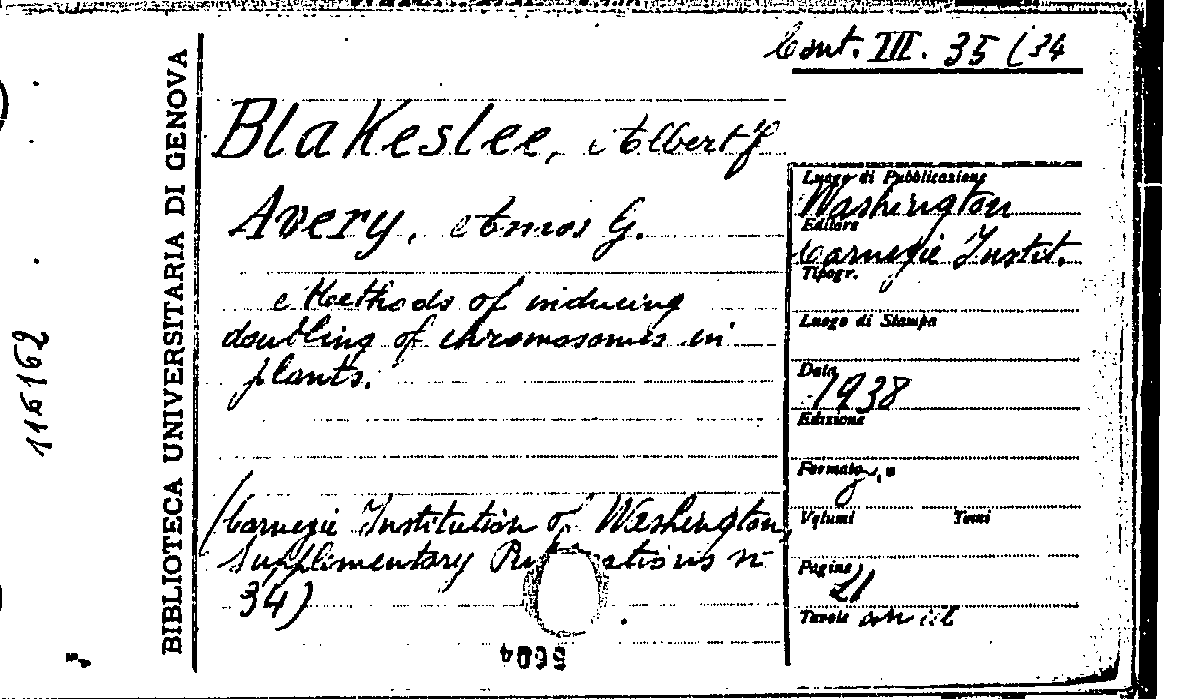 Cont. III. 35 (34
BIBLIOTECA UNIVERSITARIA DI GENOVA
Blakeslee, Albert F
Avery, Amos G.
Methods of inducing
doubling of chromosomes in
plants.
(Carnegie Institution of Washington,
Supplimentary Publications n
34)
Luogo di Pubblicazione
Washington
Editore
Carnegie Instit.
Tipogr.
Luogo di Stampa
Data
1938
Edizione
Formato
Volumi Tomi
Pagine
21
Tavole
116162
5604